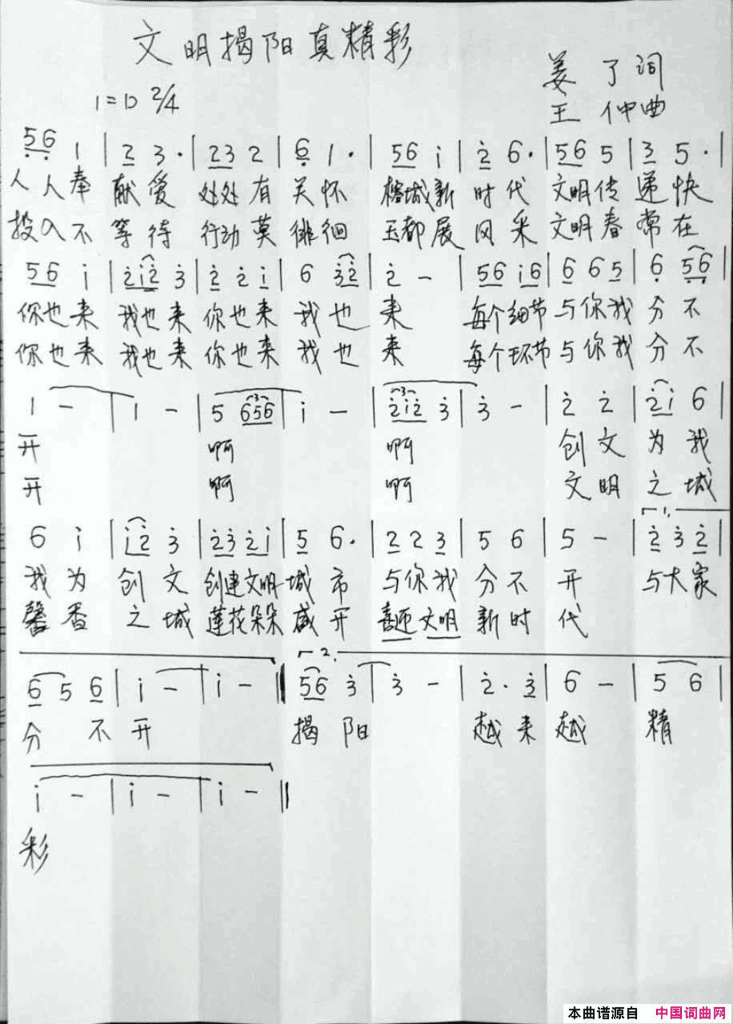 文明揭阳真精彩
1=D 2/4
姜 了 词
王 仲 曲
56 1 | 2 3· | 23 2 | 6 1· | 56 i | 2 6· | 56 5 | 3 5· |
人人奉 献爱 处处有 关怀 榕城新 时代 文明传 递快
投入不 等待 行动莫 徘徊 玉都展 风采 文明春 常在
56 i | 2i2 3 | 2 2 i | 6 32 | 2 - | 56 i6 | 6 65 | 6 56 |
你也来 我也来 你也来 我也 来 每个细节 与你我 分不
你也来 我也来 你也来 我也 来 每个环节 与你我 分不
1 - | 1 - | 5 656 | i - | 2i2 3 | 3 - | 2 2 | 2i 6 |
开 啊 啊 创文 为我
开 啊 啊 文明 之城
6 i | i2 3 | 23 2i | 5 6· | 2 2 3 | 5 6 | 5 - | 2 3 2 |
我为 创文 创建文明 城市 与你我 分不 开 与大家
馨香 之城 莲花朵朵 盛开 喜迎文明 新时 代
1.
6 5 6 | i - | i - :|| 56 3 | 3 - | 2· 3 | 6 - | 5 6 |
2.
分不开 揭阳 越来越 精
i - | i - | i - ||
彩
本曲谱源自 中国词曲网